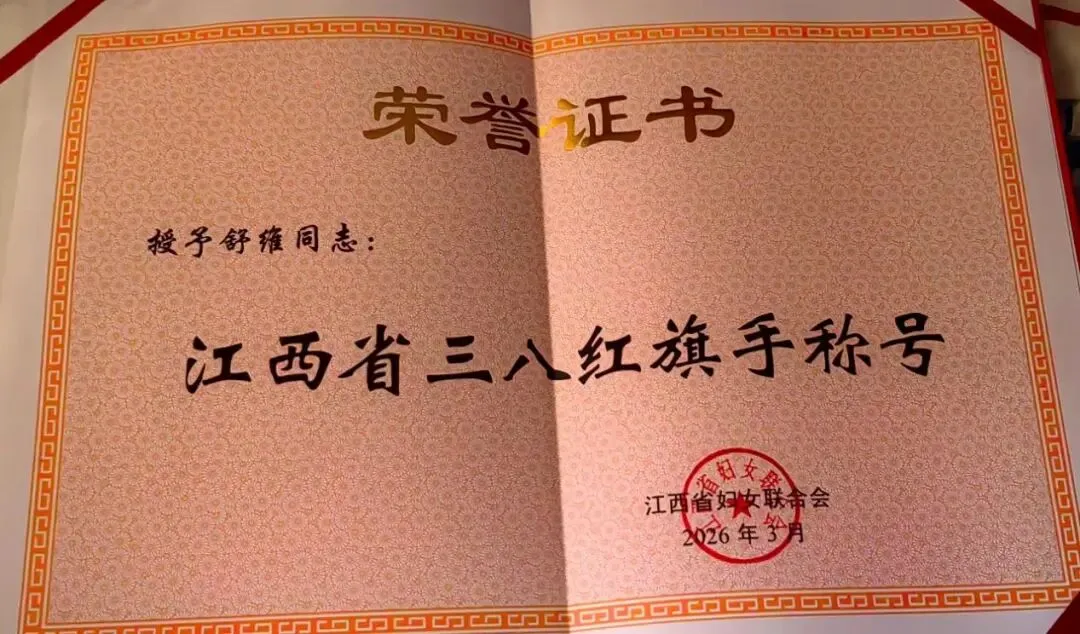 荣誉证书
授予舒维同志：
江西省三八红旗手称号
江西省妇女联合会
江西省妇女联合会
2026年3月